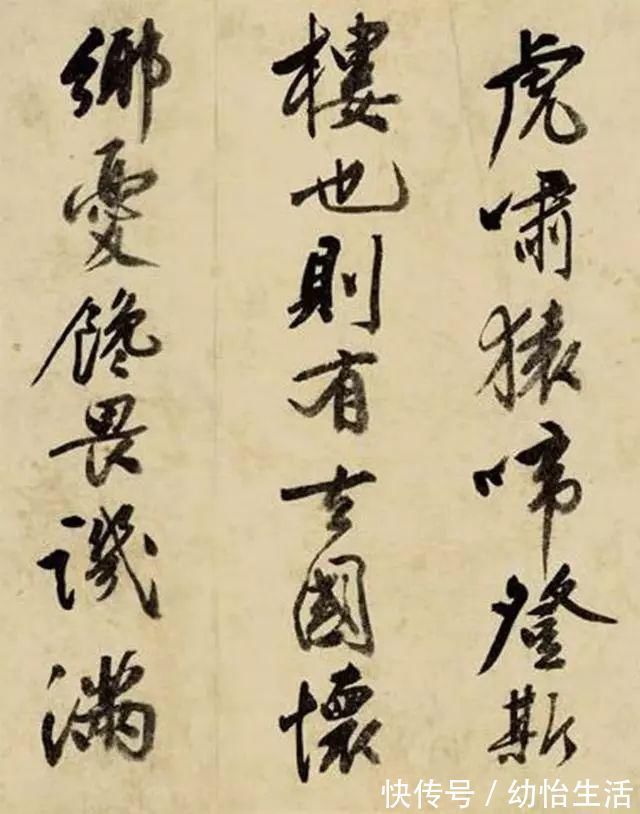 虎嘯猿啼登斯
樓也則有去國懷
鄉憂饞畏譏滿
快传号／幼怡生活